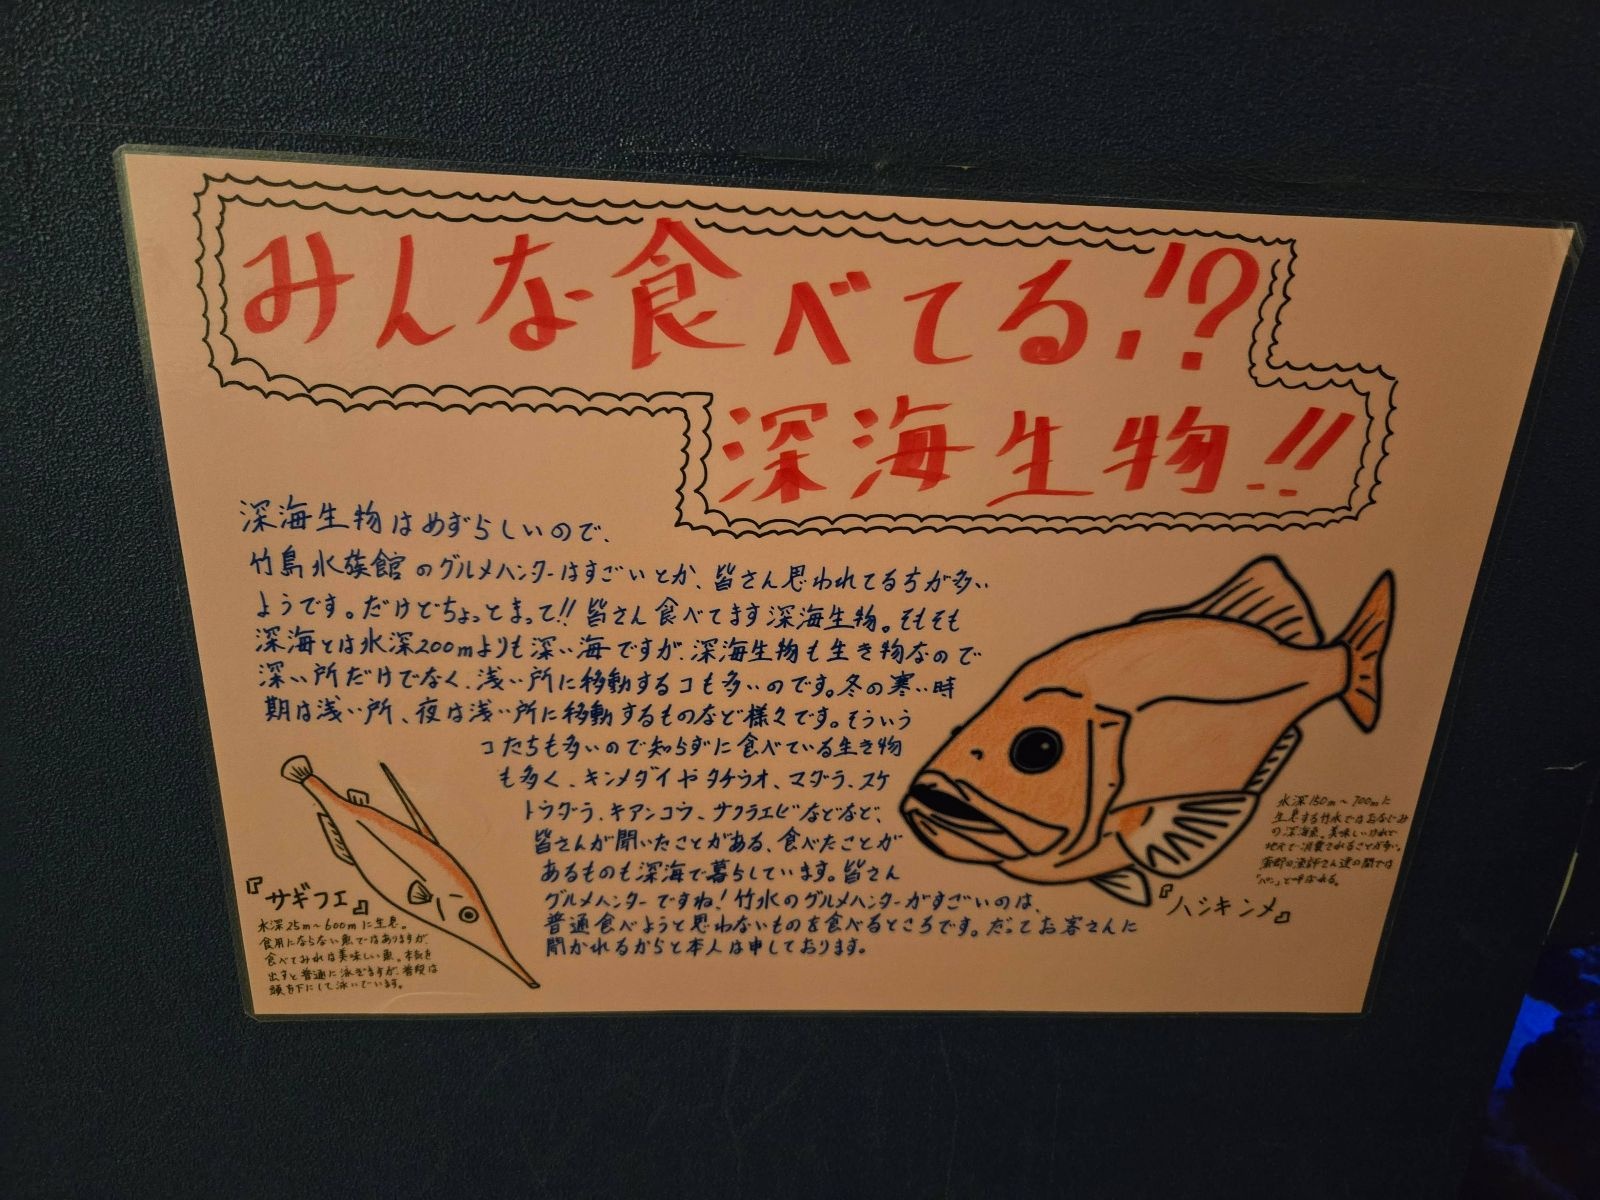 みんな食べてる!?
深海生物!!
深海生物はめずらしいので、
竹島水族館のグルメハンターはすごいとか、皆さん思われてる方が多い
ようです。だけどちょっとまって!!皆さん食べてます深海生物。そもそも
深海とは水深200mよりも深い海ですが、深海生物も生き物なので
深い所だけでなく、浅い所に移動するコも多いのです。冬の寒い時
期は浅い所、夜は浅い所に移動するものなど様々です。そういう
コたちも多いので知らずに食べている生き物
も多く、キンメダイやタチウオ、マダラ、スケ
トウダラ、キアンコウ、サクラエビなどなど、
皆さんが聞いたことがある、食べたことが
あるものも深海で暮らしています。皆さん
グルメハンターですね!竹水のグルメハンターがすごいのは、
普通食べようと思わないものを食べるところです。だってお客さんに
聞かれるからと本人は申しております。
『サギフエ』
水深25m〜600mに生息。
食用にならない魚ではありますが、
食べてみれば美味しい魚。本気を
出すと普通に泳ぎますが、普段は
頭を下にして泳いでいます。
『ハシキンメ』
水深150m〜700mに
生息する竹水ではおなじみ
の深海魚。美味しいけれど
地元で消費されることが多い。
蒲郡の漁師さん達の間では
と呼ばれる。